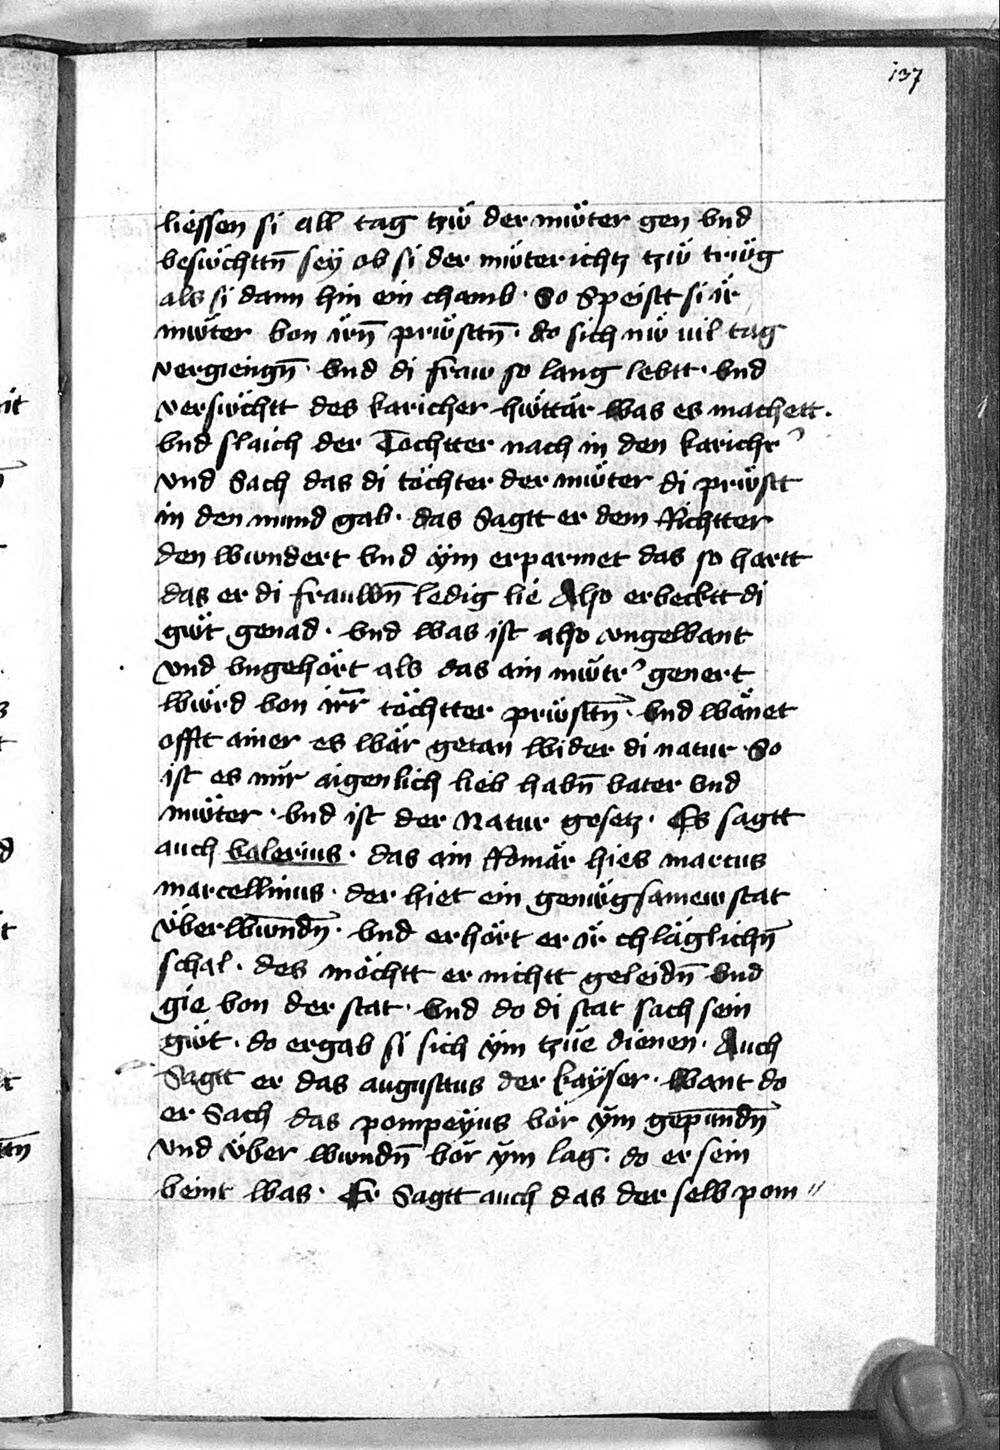 137
liessen si all tag tzw̎ der mw̎ter gen vnd
beswchttn̄ sey ob si der mw̎ter ichtz tzw̎ trw̎g
als si dann hin ein chamb · So Speistt si ir
mw̎ter von irn̄ prw̎sttn̄ · do sich nw̎ uil tag
vergiengn̄ · vnd di fraw so lang lebtt · vnd
verswchtt des karicher hw̎ttär was es machett ·
vnd slaich der Tochtter nach in den karichr̛
vnd Sach das di töchter der mw̎ter di prw̎stt
in den mund gab · das Sagtt er dem Richtter
den wundert vnd ÿm erparmet das so hartt
das er di frauwn̄ ledig lie Also erbecktt di
gw̎t genad · vnd was ist also vngelbant
vnd vngehört als das ain mw̎tr̛ genert
würd von irr̄ töchtter prw̎sttn̄ · vnd wänet
offtt ainer es wär getan wider di natur · So
ist es nür aigenlich lieb habn̄ vater vnd
mw̎ter · vnd ist der Natur gesetz · Es sagtt
auch valerius · das ain Romär hies marcus
marcellinus · der hiet ein genw̎gsamew stat
v̈berwundn̄ · vnd erhört er ir chläglichn̄
schal · des möchtt er nichtt geleidn̄ vnd
gie von der stat · vnd do di stat sach sein
gw̎t · do ergab si sich ÿm tzüe dienen · Auch
Sagtt er das augusttus der kayser · want do
er Sach das pompeyus vor ÿm gepundn̄
vnd v̈ber wundn̄ vor ÿm lag · do er sein
veint was · Er Sagtt auch das der selb pom〃